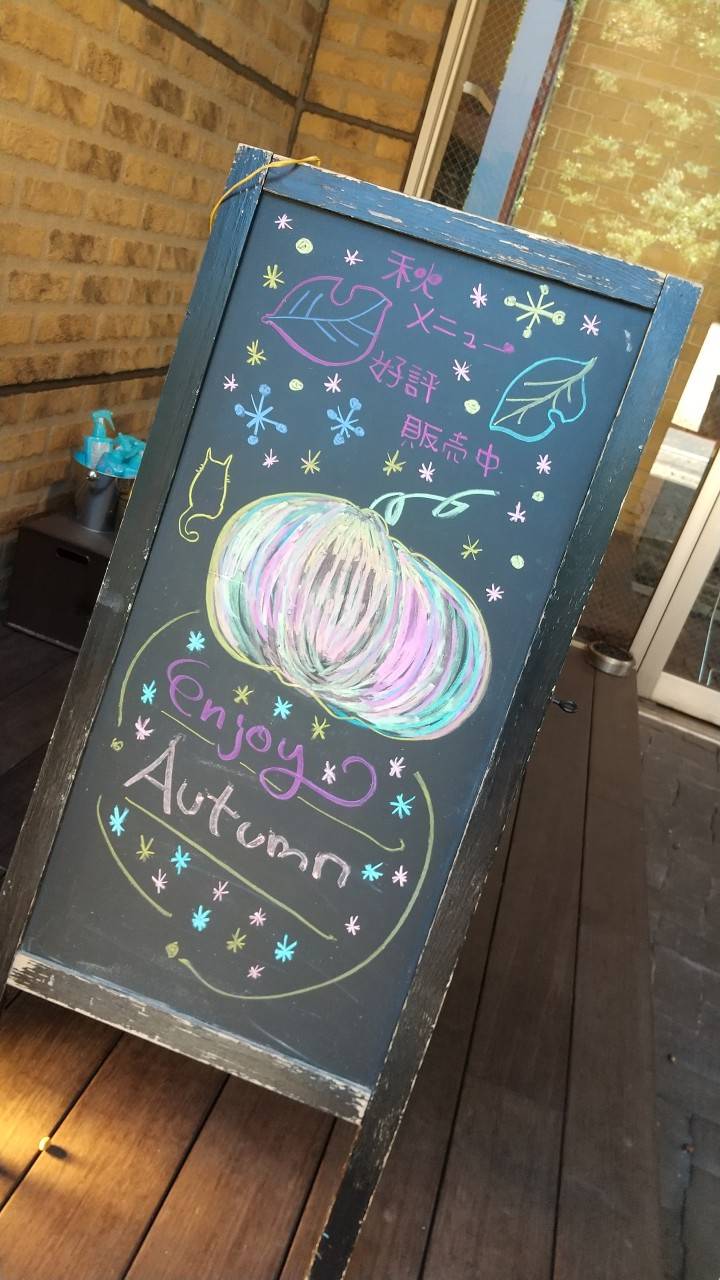 秋
メニュー
好評
販売中
enjoy
Autumn